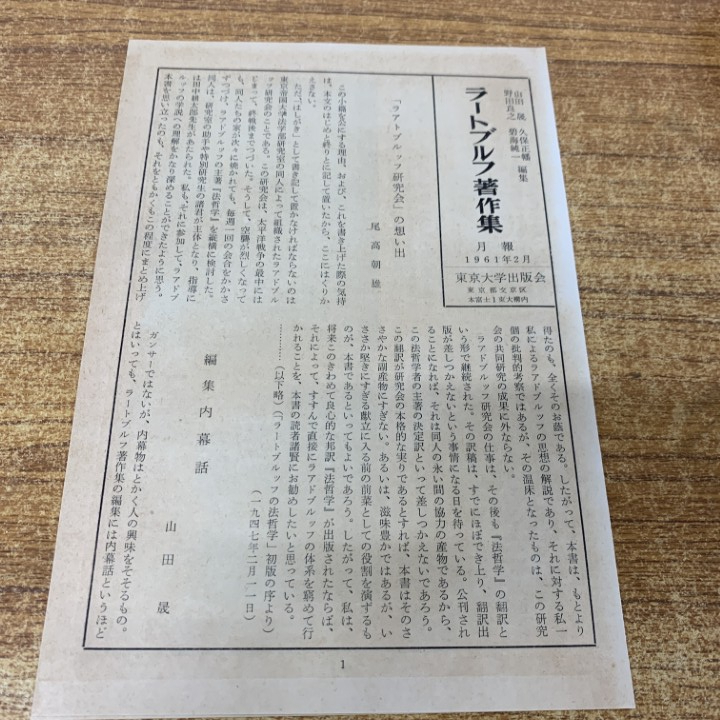 山田晟 久保正幡
野田良之 碧海純一 編集
ラートブルフ著作集
月報
1961年2月
東京大学出版会
東京都文京区
本富士1東大構内
「ラアトブルッフ研究会」の想い出
尾高朝雄
この小篇を公にする理由、および、これを書き上げた際の気持
は、本文のはじめと終りとに記して置いたから、ここにはくりか
えさない。
ただ、「はしがき」として書き記して置かなければならないのは
東京帝国大学法学部研究室の同人によって組織されたラアドブル
ッフ研究会のことである。この研究会は、太平洋戦争の最中には
じまって、終戦後までつづいた。そうして、空襲が烈しくなって
も、同人たちの家が次々に焼かれても、毎週一回の会合をかかさ
ずつづけ、ラアドブルッフの主著『法哲学』を縦横に検討した。
同人は、研究室の助手や特別研究生の諸君が主体となり、指導に
は田中耕太郎先生があたられた。私も、それに参加して、ラアドブ
ルッフの学説への理解をかなり深めることができたように思う。
本書を思い立ったのも、それをともかくもこの程度にまとめ上げ
得たのも、全くそのお蔭である。したがって、本書は、もとより
私によるラアドブルッフの思想の解説であり、それに対する私一
個の批判的考察ではあるが、その温床となったものは、この研究
会の共同研究の成果に外ならない。
ラアドブルッフ研究会の仕事は、その後も『法哲学』の翻訳と
いう形で継続された。その訳稿は、すでにほぼでき上り、翻訳出
版が差しつかえないという事情になる日を待っている。公刊され
ることになれば、それは同人の永い間の協力の産物であるから、
この法哲学者の主著の決定訳といって差しつかえないであろう。
この翻訳が研究会の本格的な実りであるとすれば、本書はそのさ
さやかな副産物にすぎない。あるいは、滋味豊かではあるが、い
ささか堅きにすぎる献立に入る前の前菜としての役割を演ずるも
のが、本書であるといってもよいであろう。したがって、私は、
将来このきわめて良心的な邦訳『法哲学』が出版されたならば、
それによって、すすんで直接にラアドブルッフの体系を窮めて行
かれることを、本書の読者諸賢にお勧めしたいと思っている。
………（以下略）（「ラートブルッフの法哲学」初版の序より）
（一九四七年二月一一日）
編集内幕話
山田晟
ガンサーではないが、内幕物はとかく人の興味をそそるもの。
とはいっても、ラートブルフ著作集の編集には内幕話というほど
1